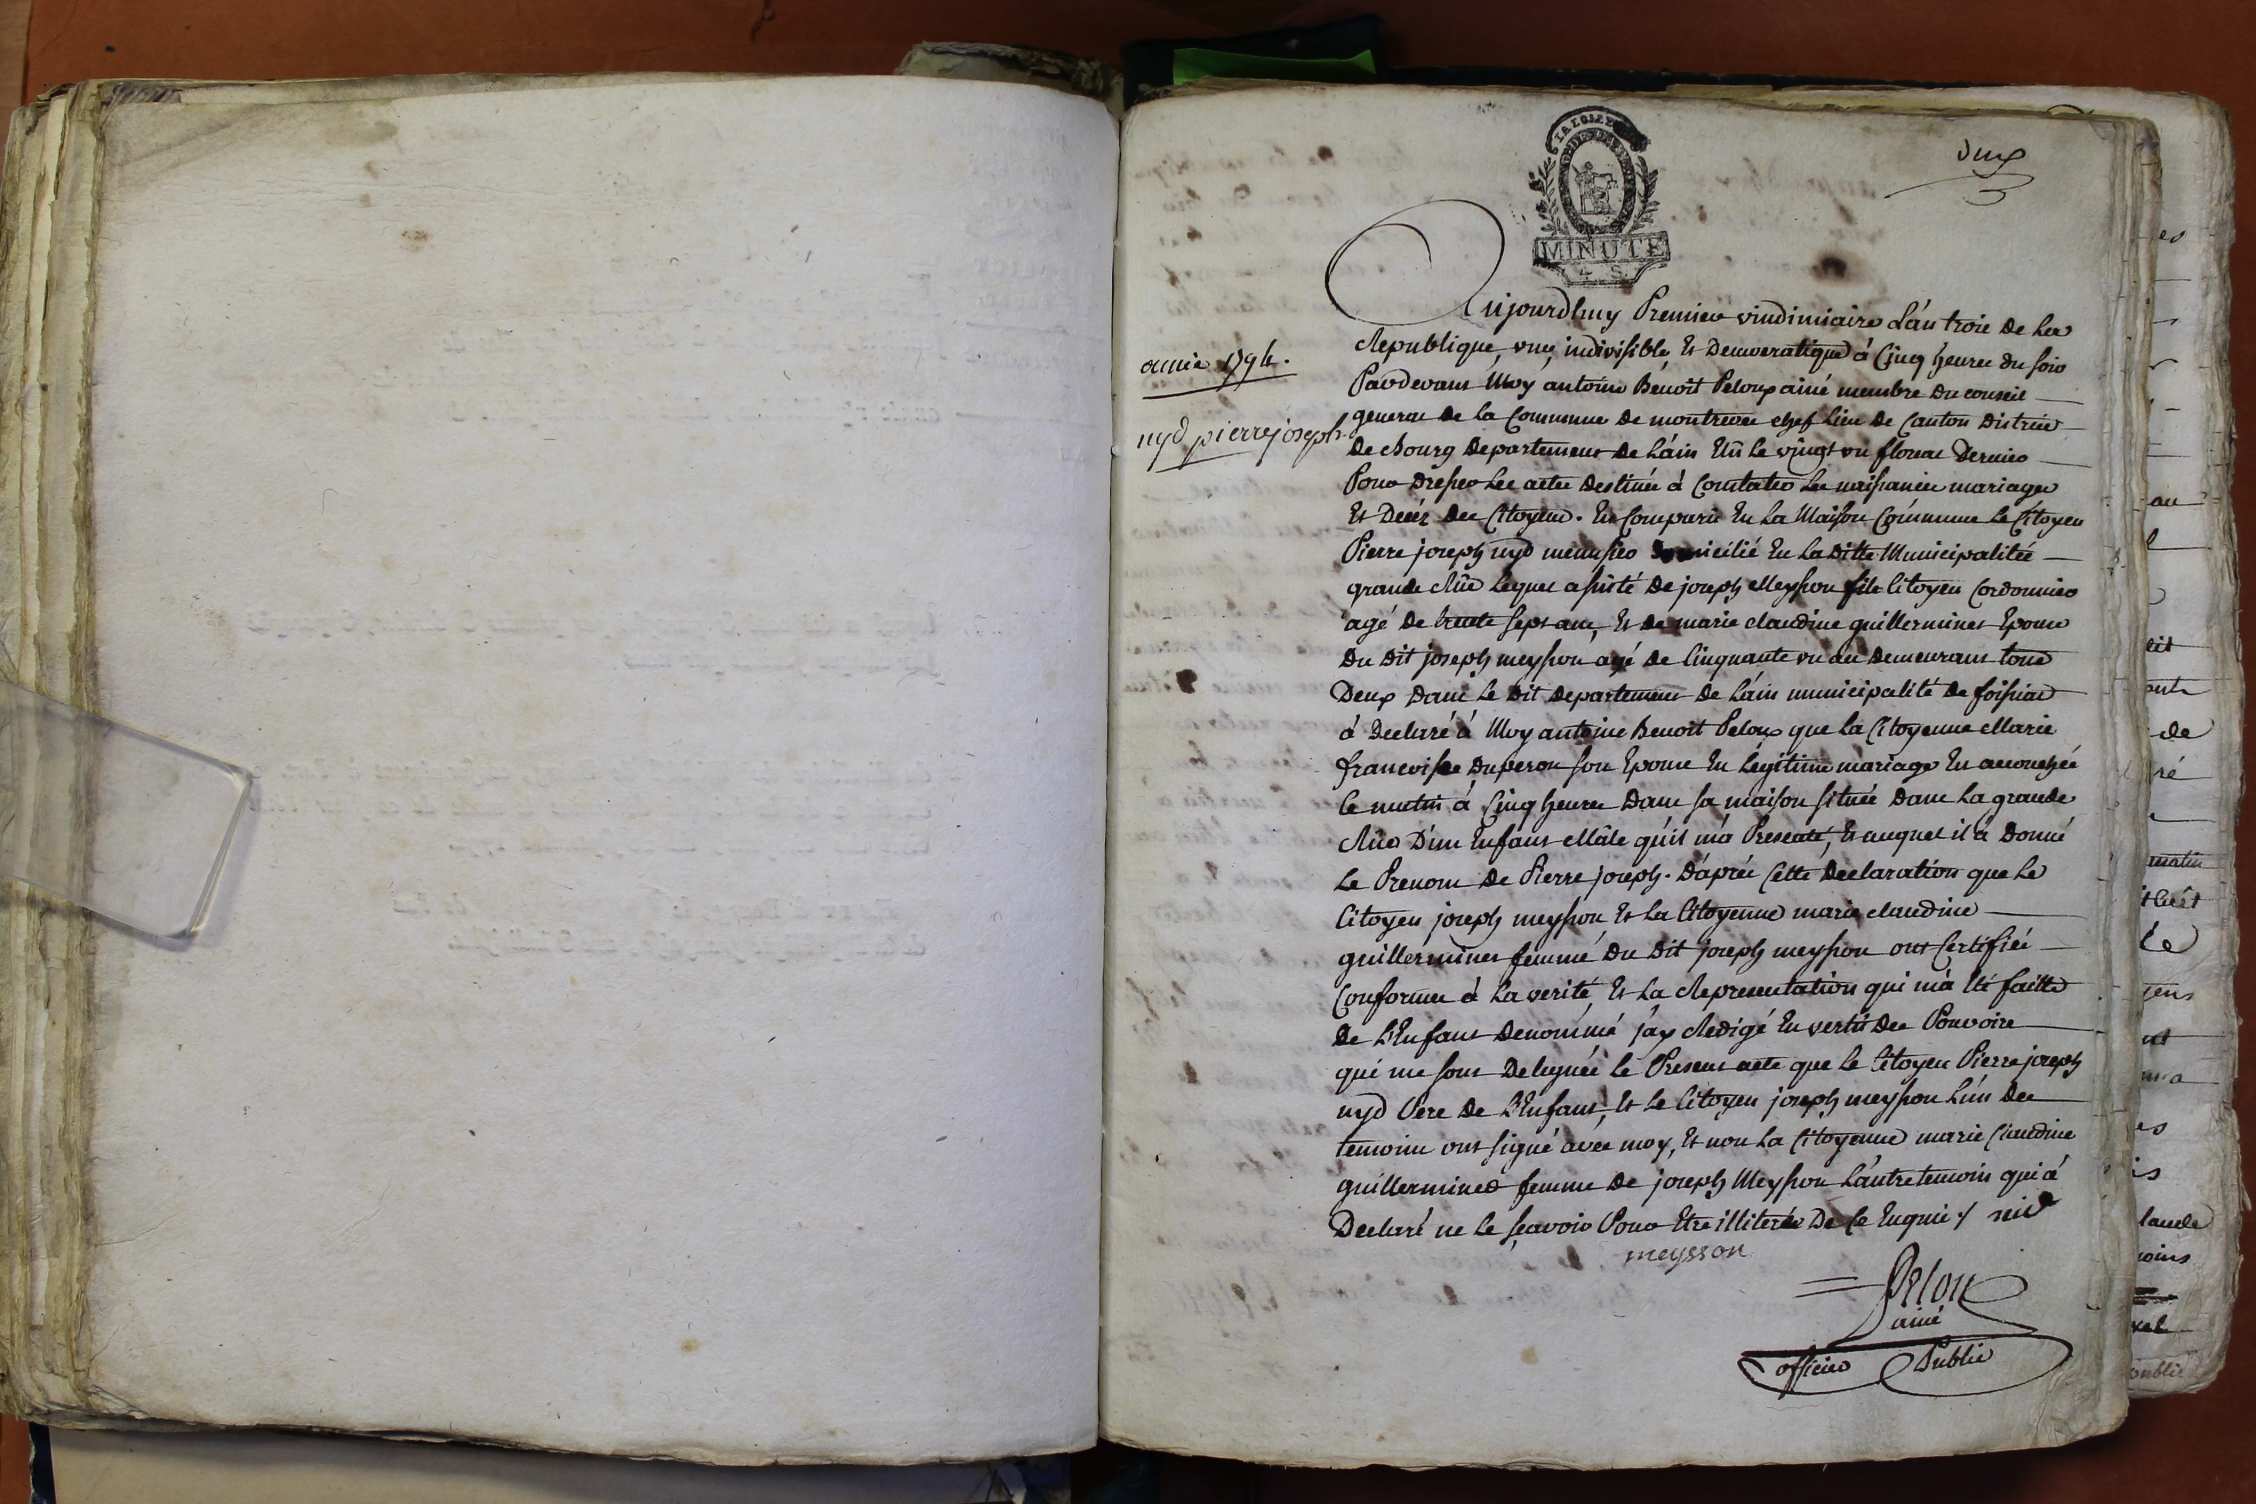 deux
LA LOI
MINUTE
4. S.
année 1794.
nyd pierre joseph
Aujourdhuy Premier vindimiaire L'an trois de La
Republique, une, indivisible, Et Democratique à Cinq heures du soir
Pardevant Moy antoine Benoit Peloux ainé membre du conseil
general de la Commune de montrevel chef Lieu de Canton District
de Bourg departement de L'ain Elû Le vingt un floreal dernier
Pour dresser Les actes destinés à Constater Les naissances mariages
Et Décès des Citoyens. Est Comparu En La Maison Commune Le Citoyen
Pierre joseph nyd menusier domicilié En La ditte Municipalitée
grande Rüe Lequel assisté de joseph Meysson fils Citoyen Cordonnier
agé de trente sept ans, Et de marie claudine guillerminet Epouse
du dit joseph meysson agé de Cinquante un an demeurans tous
deux dans Le dit departement de L'ain municipalité de foissiat
à declaré à Moy antoine Benoit Peloux que La Citoyenne Marie
francoise duperon son Epouse En Légitime mariage Est accouchée
Ce matin à Cinq heures dans sa maison située dans La grande
Rüe D'un Enfant Mâle qu'il m'a Presenté, Et auquel il à donné
Le Prenom de Pierre joseph. D'après Cette declaration que Le
Citoyen joseph meysson, Et La Citoyenne marie claudine
guillerminet femme du dit joseph meysson ont Certifiée
Conforme à La verité, Et La Representation qui m'à Eté faitte
de L'Enfant denommé j'ay Redigé En vertu des Pouvoirs
qui me sont Delegués Le Present acte que Le Citoyen Pierre joseph
nyd Pere de L'Enfant, Et Le Citoyen joseph meysson L'un des
temoins ont signé avec moy, Et non La Citoyenne marie Claudine
guillerminet femme de joseph Meysson L'autre temoin qui à
Declaré ne Le sçavoir Pour Etre illiterée De Ce Enquis./ nid
meysson
Peloux
ainé
officier Public